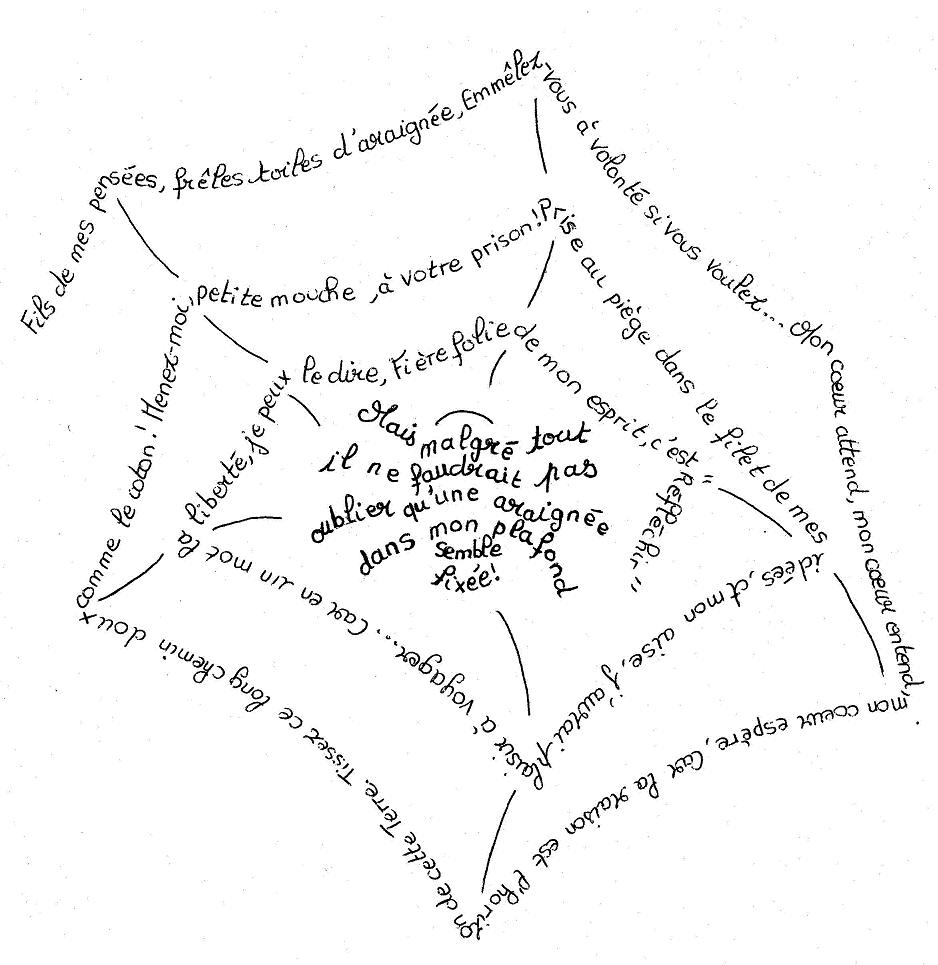 Fils de mes pensées, frêles toiles d'araignée, Emmêlez-
vous à volonté si vous voulez... Mon
coeur attend, mon coeur entend,
mon coeur espère, Car la raison est l'hori
zon de cette Terre. Tissez ce long chemin doux
comme le coton! Menez-moi,
petite mouche, à votre prison!
Prise au piège dans le filet de mes
idées, et mon aise, j'aurai
plaisir à voyager... Car en un mot la
liberté, je peux
le dire, Fière folie
de mon esprit, c'est
"Réfléchir"
Mais malgré tout
il ne faudrait pas
oublier qu'une araignée
dans mon plafond
semble
fixée!